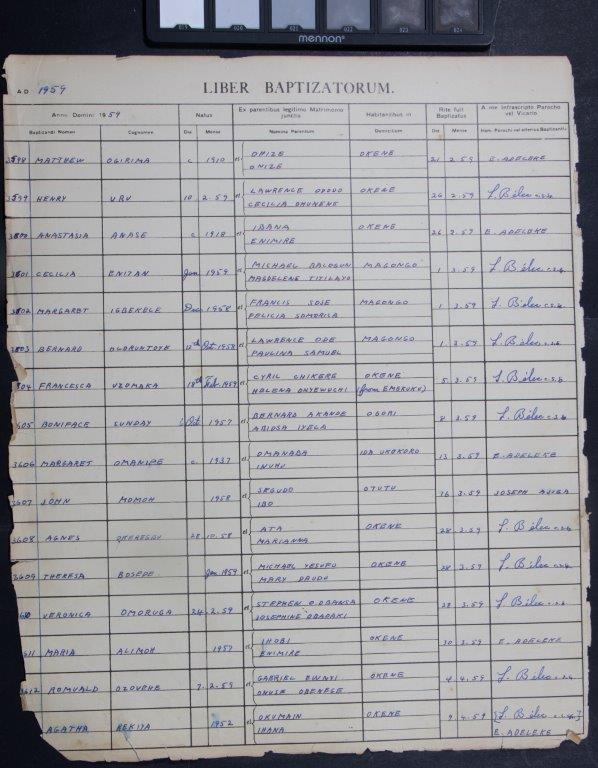 mennon
A D 1959 LIBER BAPTIZATORUM.
Anno Domini 1959 Natus Ex parentibus legitimo Matrimonio junctis Habitantibus in Rite fuit Baptizatus A me infrascripto Parocho vel Vicario
Baptizandi Nomen Cognomen Die Mense Nomina Parentum Domicilium Die Mense Nom. Parochi vel alterius Baptizantis
MATTHEW OGIRIMA c 1910 et OHIZE OKENE 21 2.59 E. ADELEKE
ONIZE
HENRY UBU 10 2.59 et LAWRENCE OKENE 26 2.59 L. Bélec c.s.sp
CECILIA OHUNENE
ANASTASIA ANASE c 1918 et IBANA OKENE 26 2.59 E. ADELEKE
ENIMIRE
CECILIA ENITAN Jan 1959 et MICHAEL BALOGUN MAGONGO 1 3.59 L. Bélec c.s.sp
MAGDELENE TITILAYO
MARGARET IGBEKELE Dec 1958 et FRANCIS MAGONGO 1 3.59 L. Bélec c.s.sp
FELICIA
BERNARD OLORUNTOYE Oct 1958 et LAWRENCE ODE MAGONGO 1 3.59 L. Bélec c.s.sp
PAULINA SAMUEL
FRANCESCA UZOMAKA 18th Feb. 1959 et CYRIL CHIKERE OKENE 5 3.59 L. Bélec c.s.sp
HELENA ONYEWUCHI (from EMEKUKU)
3605 BONIFACE SUNDAY Oct 1957 et BERNARD AKANDE OBORI 8 3.59 L. Bélec c.s.sp
ABIOSA IYELA
3606 MARGARET OMANIPE c 1937 et OMANABA 13 3.59 E. ADELEKE
INUHU
3607 JOHN MOMOH 1958 et OTUTU 16 3.59 JOSEPH
IBO
3608 AGNES 28 10.58 et ATA OKENE 28 3.59 L. Bélec c.s.sp
MARIANNA
3609 THERESA BOSEDE Jan 1959 et MICHAEL YESUFU OKENE 28 3.59 L. Bélec c.s.sp
MARY DAUDU
VERONICA OMORUGA 24 2.59 et STEPHEN OKENE 28 3.59 L. Bélec c.s.sp
JOSEPHINE
MARIA ALIMOH 1957 et IHOBI OKENE 30 3.59 E. ADELEKE
ENIMIRE
3612 ROMUALD OZOVEHE 7 2.59 et GABRIEL OKENE 4 4.59 L. Bélec c.s.sp
OHUSE
AGATHA REKIYA 1952 et OKUMAIN OKENE 9 4.59 [L. Bélec c.s.sp]
IHANA E. ADELEKE